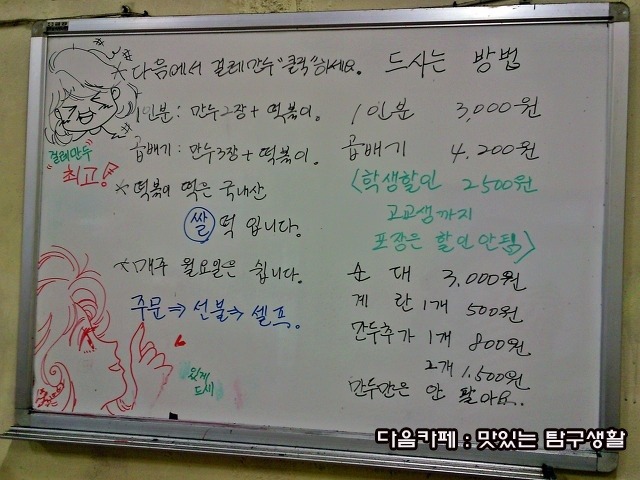 *다음에서 걸레만두"클릭"하세요.
1인분: 만두2장+떡볶이.
곱배기: 만두3장+떡볶이.
*떡볶이 떡은 국내산
쌀 떡 입니다.
*매주 월요일은 쉽니다.
주문⇒선불⇒셀프.
"걸레만두"
최고!
맛있게
드세
드시는 방법
1인분 3,000원
곱배기 4.200원
<학생할인 2500원
고교생까지
포장은 할인안됨>
순대 3,000원
계란1개 500원
만두추가 1개 800원
2개 1.500원
만두만은 안 팔아요.
다음카페 : 맛있는 탐구생활